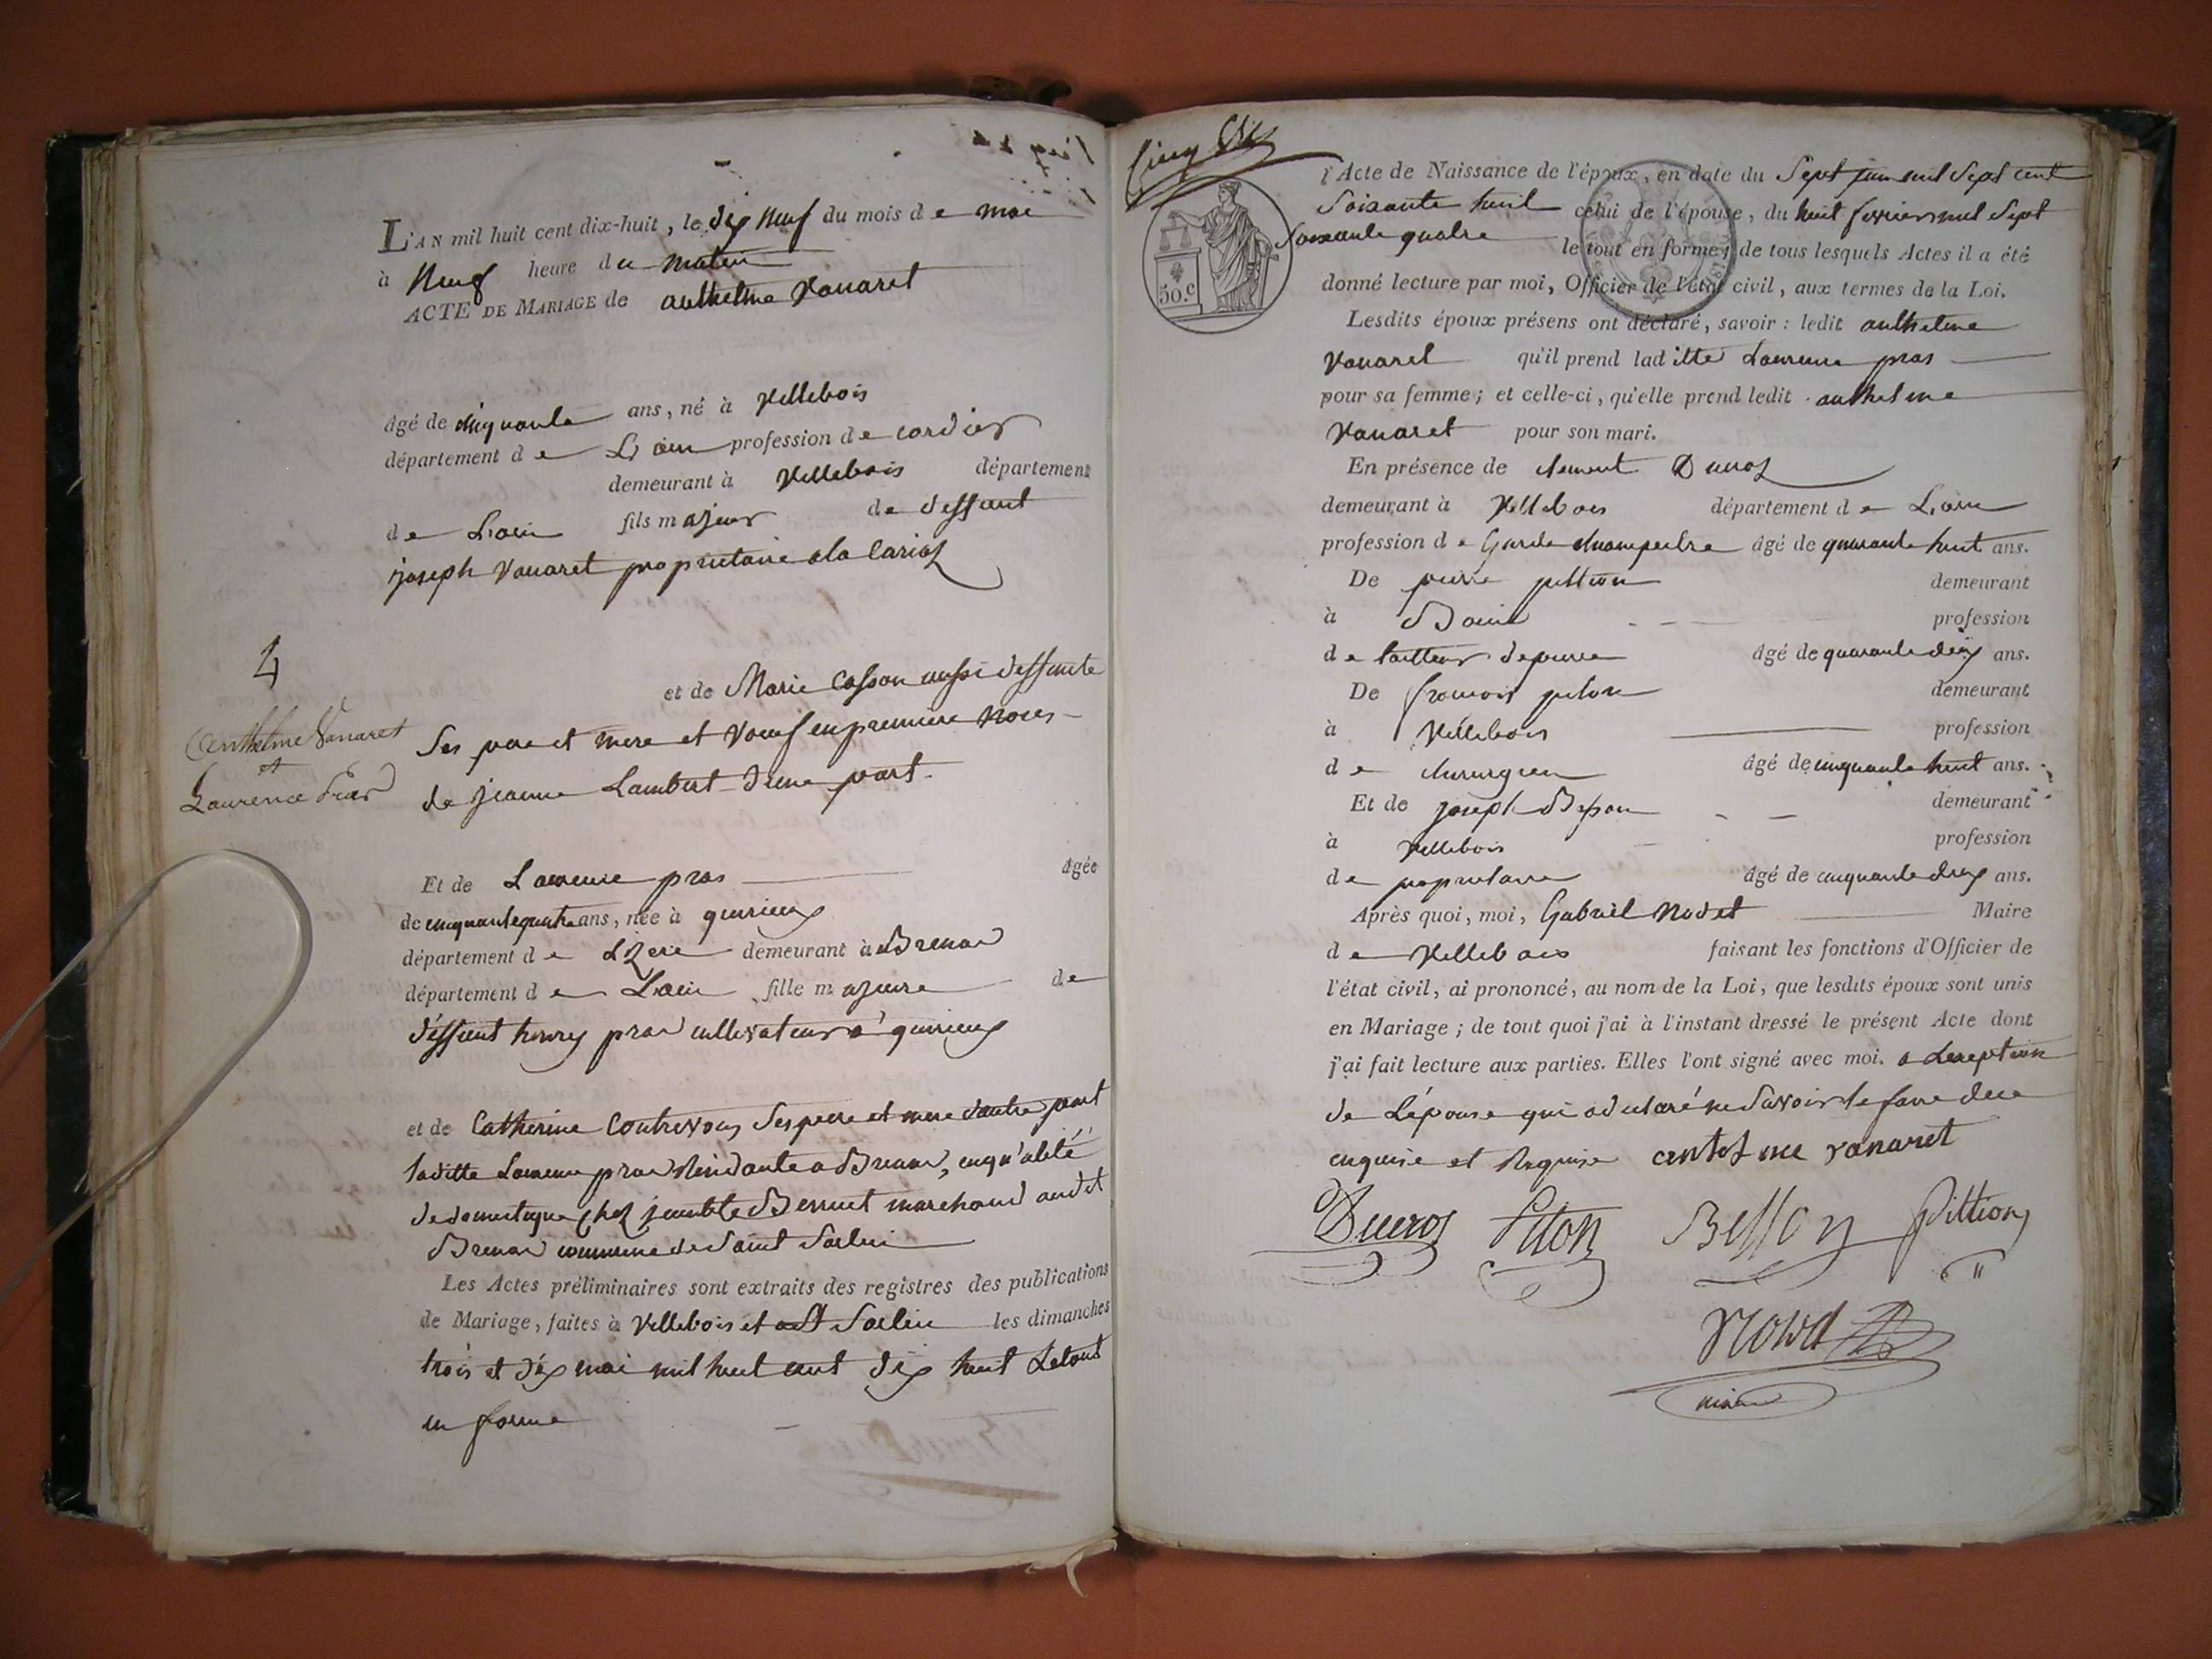 L'AN mil huit cent dix-huit, le dix neuf du mois de mai
à Neuf heure du matin
ACTE DE MARIAGE de anthelme Vanaret
âgé de cinquante ans, né à Villebois
département de L'ain profession de cordier
demeurant à Villebois département
de L'ain fils majeur de deffunt
joseph Vanaret proprietaire a la
4
et de Marie Casson aussi deffunte
Anthelme Vanaret
et
Laurence Pras
Ses pere et mere et Veuf en premiere Noces
de jeanne Lambert d'une part
Et de Laurence pras âgée
de cinquante quatre ans, née à quirieux
département de Lizere demeurant à Brenaz
département de L'ain fille majeure de
deffunt henry pras cultivateur a quirieux
et de Catherine Contrevoz Ses pere et mere d'autre part
laditte Laurence pras Residante a Brenaz, en qualité
de domestique chez Bernet marchand audit
Brenaz commune de Saint Sorlin
Les Actes préliminaires sont extraits des registres des publications
de Mariage, faites à Villebois et a St Sorlin les dimanches
trois et dix mai mil huit cent dix huit Le tout
en forme
Cinq
50.c
l'Acte de Naissance de l'époux, en date du Sept juin mil Sept cent
Soixante huit celui de l'épouse, du huit fevrier mil Sept
Soixante quatre le tout en forme; de tous lesquels Actes il a été
donné lecture par moi, Officier de l'état civil, aux termes de la Loi.
Lesdits époux présens ont déclaré, savoir : ledit anthelme
Vanaret qu'il prend laditte Laurence pras
pour sa femme; et celle-ci, qu'elle prend ledit anthelme
Vanaret pour son mari.
En présence de clement Ducroz
demeurant à Villebois département de L'ain
profession de Garde champestre âgé de quarante huit ans.
De pierre pittion demeurant
à profession
de tailleur de pierre âgé de quarante dix ans.
De francois piton demeurant
à Villebois profession
de chirurgien âgé de cinquante huit ans.
Et de joseph Besson demeurant
à Villebois profession
de proprietaire âgé de cinquante dix ans.
Après quoi, moi, Gabriel Nodet Maire
de Villebois faisant les fonctions d'Officier de
l'état civil, ai prononcé, au nom de la Loi, que lesdits époux sont unis
en Mariage; de tout quoi j'ai à l'instant dressé le présent Acte dont
j'ai fait lecture aux parties. Elles l'ont signé avec moi. a L'exeption
de L'épouse qui a declaré ne Savoir le faire de ce
enquise et Requise antelme vanaret
Ducroz Piton Besson Pittion
Nodet
maire